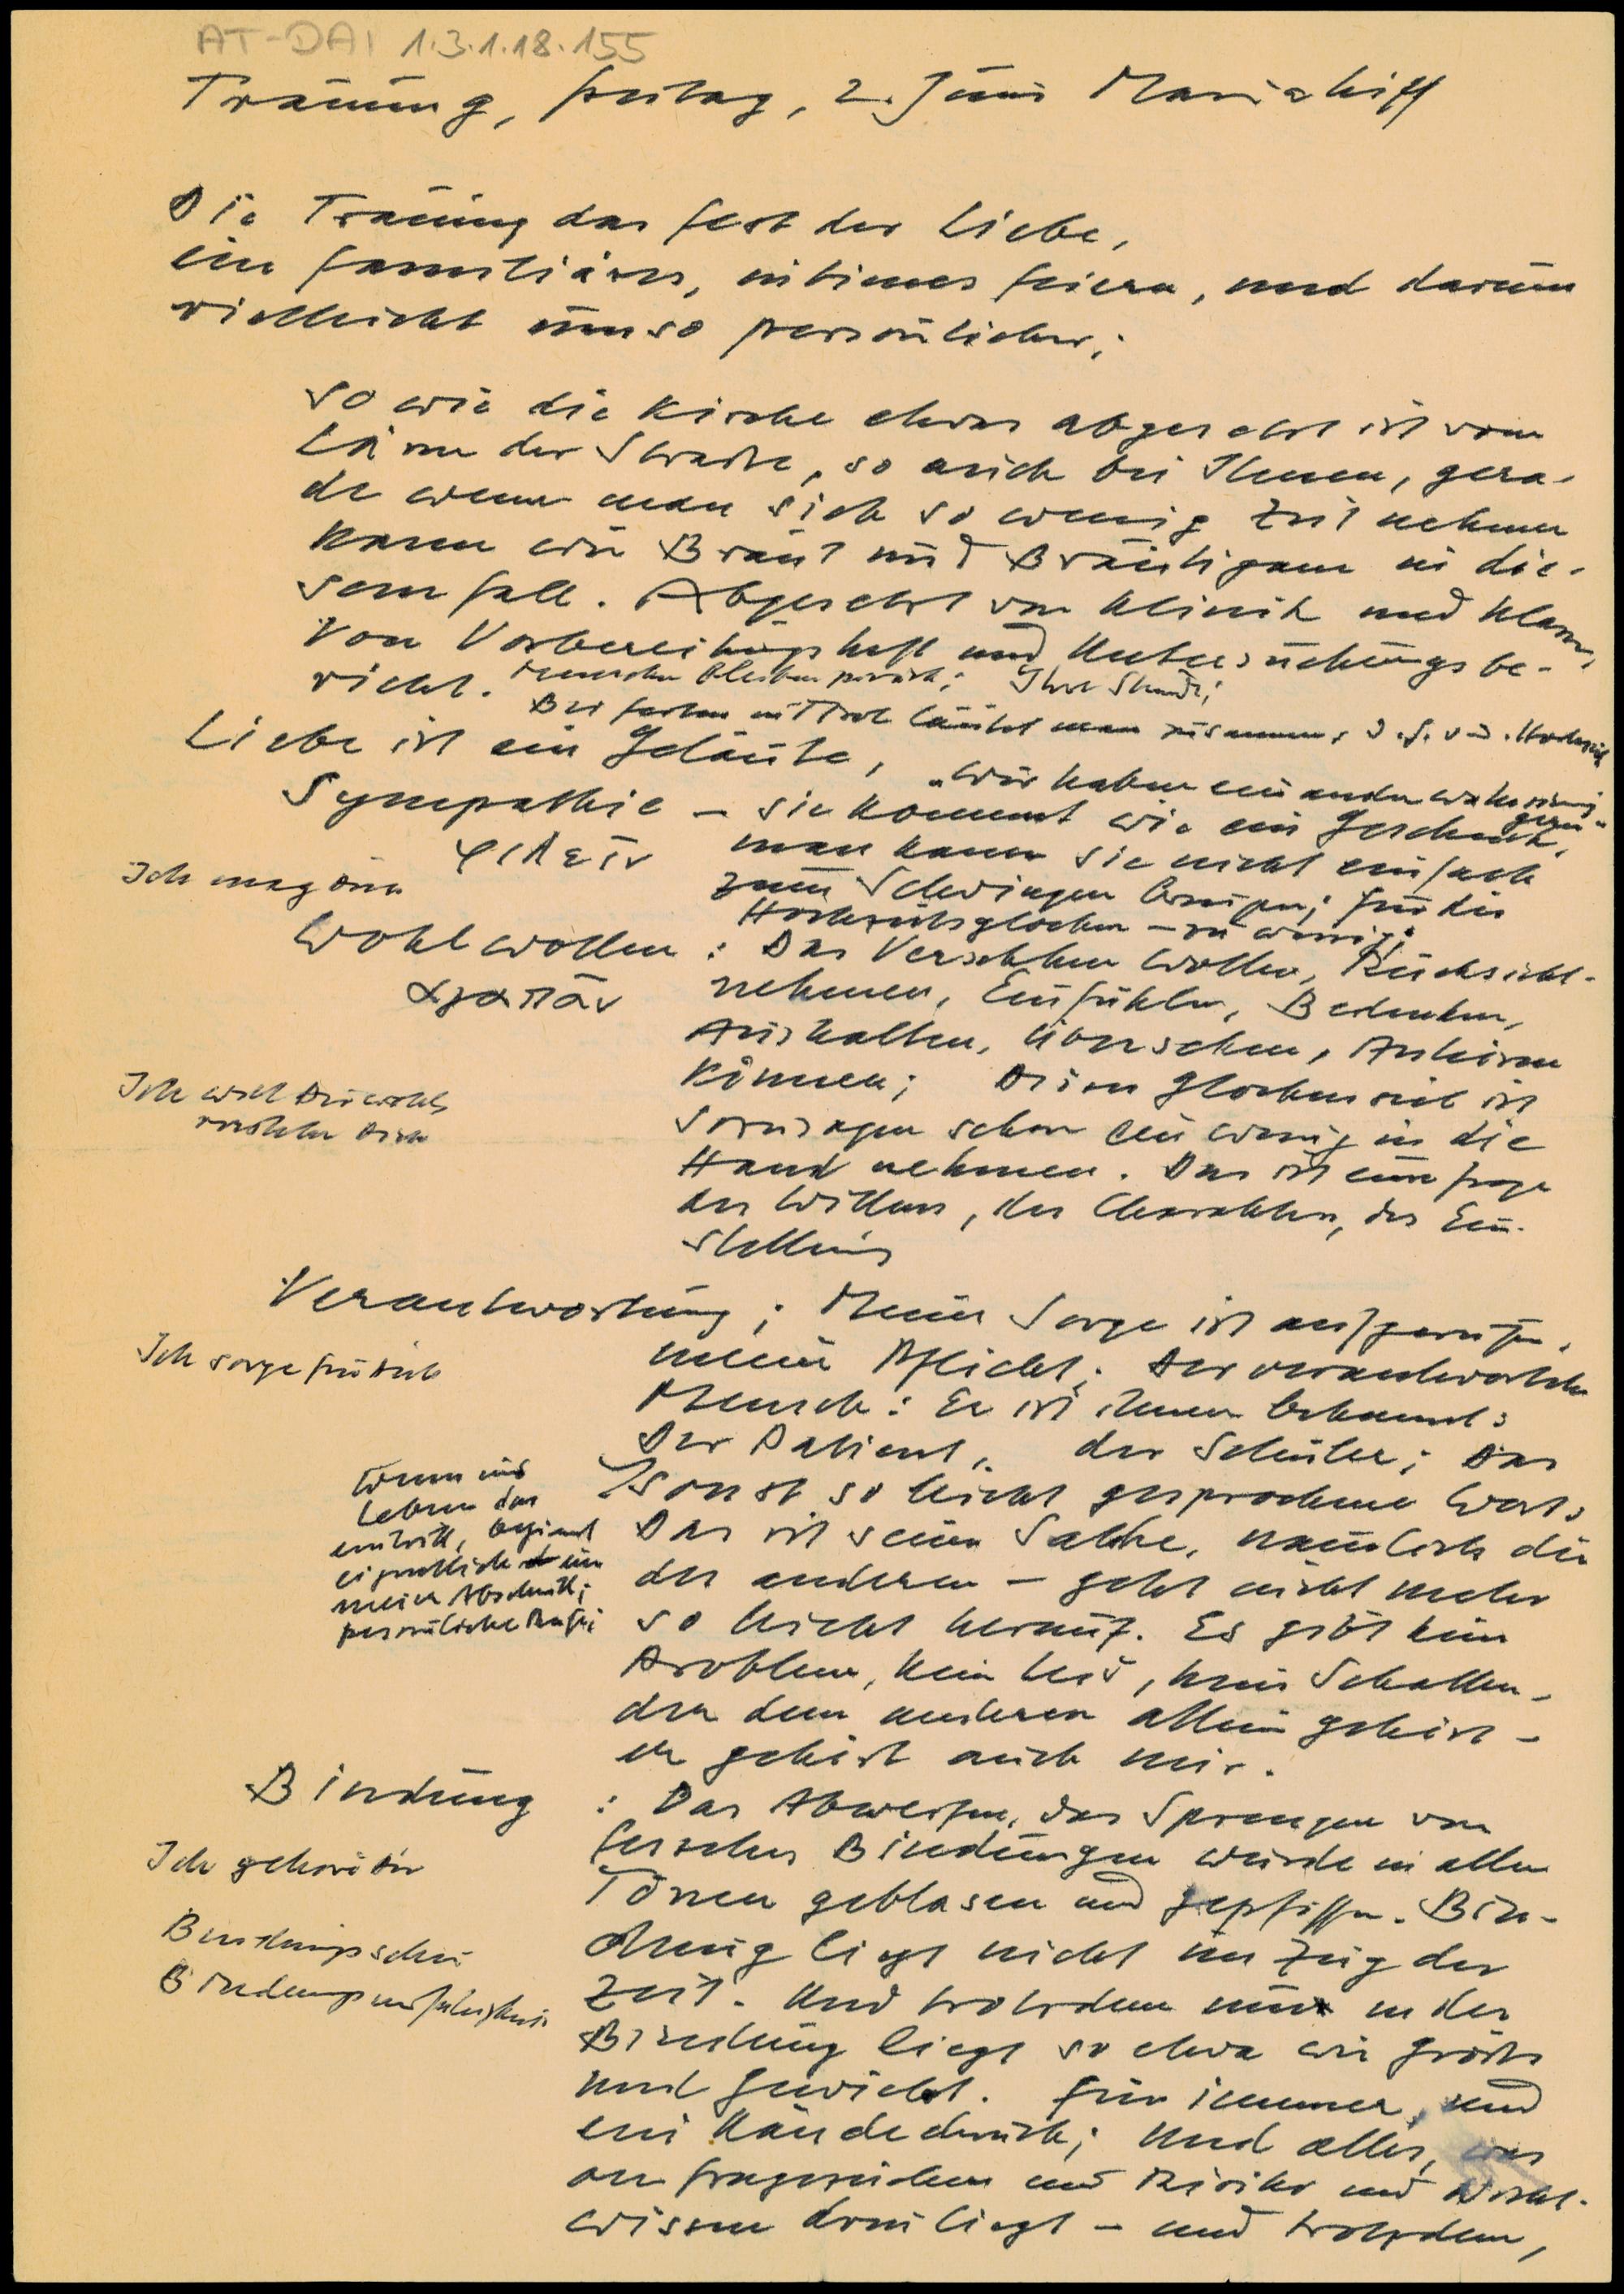 AT-DAI 1.3.1.18.155
Trauung, Freitag, 2. Juni Mariahilf
Die Trauung das Fest der Liebe,
ein familiäres, intimes Feiern, und darum
vielleicht umso persönlicher;
So wie die Kirche etwas abgesetzt ist vom
Lärm der Straße, so auch bei Ihnen, gera-
de wenn man sich so wenig Zeit nehmen
kann wie Braut und Bräutigam in die-
sem Fall. Abgesetzt von Klinik und Klasse,
von Vorbereitungsheft und Untersuchungsbe-
richt. Menschen bleiben zurück; Ihre Stunde;
Bei Festen in Tirol läutet man zusammen, Hochzeit
Liebe ist ein Geläute,
"Wir haben einander wahnsinnig gern"
Sympathie – sie kommt wie ein Geschenk,
φιλεῖν man kann sie nicht einfach
Ich mag dich
zum Schwingen bringen; für die
Hochzeitsglocken – zu wenig;
Wohlwollen : Das Verstehen Wollen, Rücksicht-
ἀγαπᾶν nehmen, Einfühlen, Bedenken,
Aushalten, Übersehen, Anhören
Können; Dieses Glockenseil ist
Ich will Dir wohl,
verstehe Dich
sozusagen schon ein wenig in die
Hand nehmen. Das ist eine Frage
des Willens, des Charakters, der Ein-
stellung
Verantwortung ; Meine Sorge ist aufgerufen,
Ich sorge für Dich
meine Pflicht; Der verantwortliche
Mensch: Er ist Ihnen bekannt:
Der Patient, der Schüler; Das
sonst so leicht gesprochene Wort:
Das ist seine Sache, nämlich die
des anderen – geht nicht mehr
so leicht herauf. Es gibt kein
Problem, kein Leid, kein Schatten –
der dem anderen allein gehört –
er gehört auch mir.
Wenn ins
Leben das
eintritt, beginnt
eigentlich ein
neuer Abschnitt;
persönliche Reife;
Bindung : Das Abwerfen, das Sprengen von
Ich gehöre Dir
Fesseln Bindungen wurde in allen
Tönen geblasen und gepfiffen. Bin-
dung liegt nicht im Zug der
Bindungsscheu
Bindungsunfähigkeit
Zeit. Und trotzdem nur in der
Bindung liegt so etwa wie Größe
und Gewicht. Für immer, und
ein Händedruck; Und alles, was
an Fragezeichen und Risiko und Nicht-
wissen drin liegt – und trotzdem,